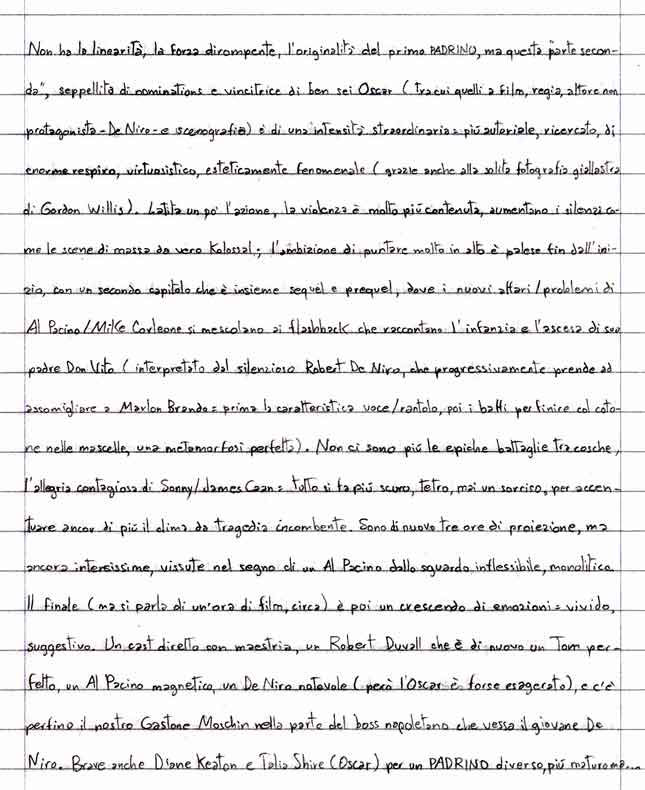 Non ha la linearità, la forza dirompente, l'originalità del primo PADRINO, ma questa "parte secon-
da", seppellita di nominations e vincitrice di ben sei Oscar (tra cui quelli a film, regia, attore non
protagonista - De Niro - e scenografia) è di una intensità straordinaria = più autoriale, ricercato, di
enorme respiro, virtuosistico, esteticamente fenomenale (grazie anche alla solita fotografia giallastra
di Gordon Willis). Latita un po' l'azione, la violenza è molto più contenuta, aumentano i silenzi co-
me le scene di massa da vero Kolossal; l'ambizione di puntare molto in alto è palese fin dall'ini-
zio, con un secondo capitolo che è insieme sequel e prequel, dove i nuovi affari/problemi di
Al Pacino/Mike Corleone si mescolano ai flashback che raccontano l'infanzia e l'ascesa di suo
padre Don Vito (interpretato dal silenzioso Robert De Niro, che progressivamente prende ad
assomigliare a Marlon Brando = prima la caratteristica voce/rantolo, poi i baffi per finire col coto-
ne nelle mascelle, una metamorfosi perfetta). Non ci sono più le epiche battaglie tra cosche,
l'allegria contagiosa di Sonny/James Caan = tutto si fa più scuro, tetro, mai un sorriso, per accen-
tuare ancor di più il clima da tragedia incombente. Sono di nuovo tre ore di proiezione, ma
ancora intensissime, vissute nel segno di un Al Pacino dallo sguardo inflessibile, monolitico.
Il finale (ma si parla di un'ora di film, circa) è poi un crescendo di emozioni = vivido,
suggestivo. Un cast diretto con maestria, un Robert Duvall che è di nuovo un Tom per-
fetto, un Al Pacino magnetico, un De Niro notevole (però l'Oscar è forse esagerato), e c'è
perfino il nostro Gastone Moschin nella parte del boss napoletano che vessa il giovane De
Niro. Brave anche Diane Keaton e Talia Shire (Oscar) per un PADRINO diverso, più maturo ma...